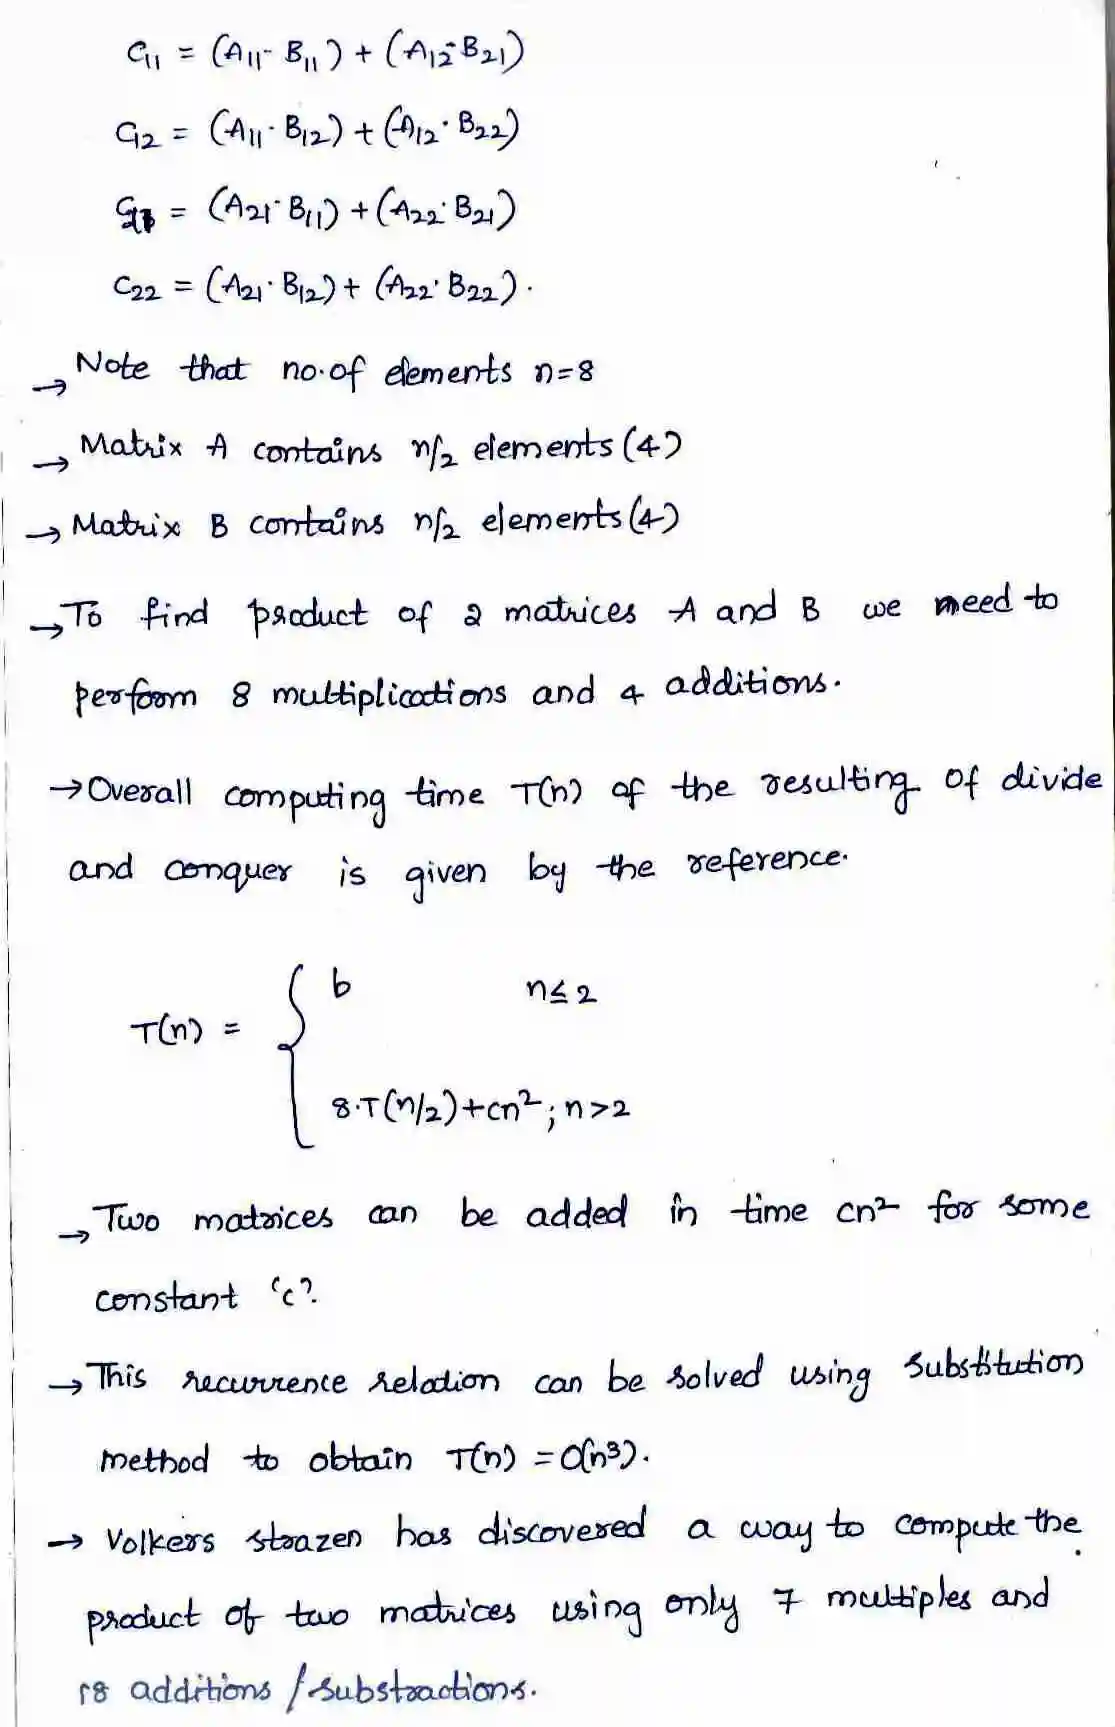 C11 = (A11· B11) + (A12·B21)
C12 = (A11· B12) + (A12· B22)
C21 = (A21· B11) + (A22· B21)
C22 = (A21· B12) + (A22· B22).
→ Note that no.of elements n=8
→ Matrix A contains n/2 elements (4)
→ Matrix B contains n/2 elements (4)
→ To find product of 2 matrices A and B we need to
perform 8 multiplications and 4 additions.
→ Overall computing time T(n) of the resulting of divide
and conquer is given by the reference.
b n≤2
T(n) = {
8·T(n/2)+cn²; n>2
→ Two matrices can be added in time cn² for some
constant 'c'.
→ This recurrence relation can be solved using substitution
method to obtain T(n) = O(n³).
→ Volkers strazen has discovered a way to compute the
product of two matrices using only 7 multiples and
18 additions / substractions.